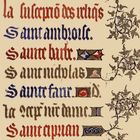 la susception des reliqs
Saint ambroise.
Sainte barbe.
Saint nicolas
Sainte fare.
la
Saint ciprian